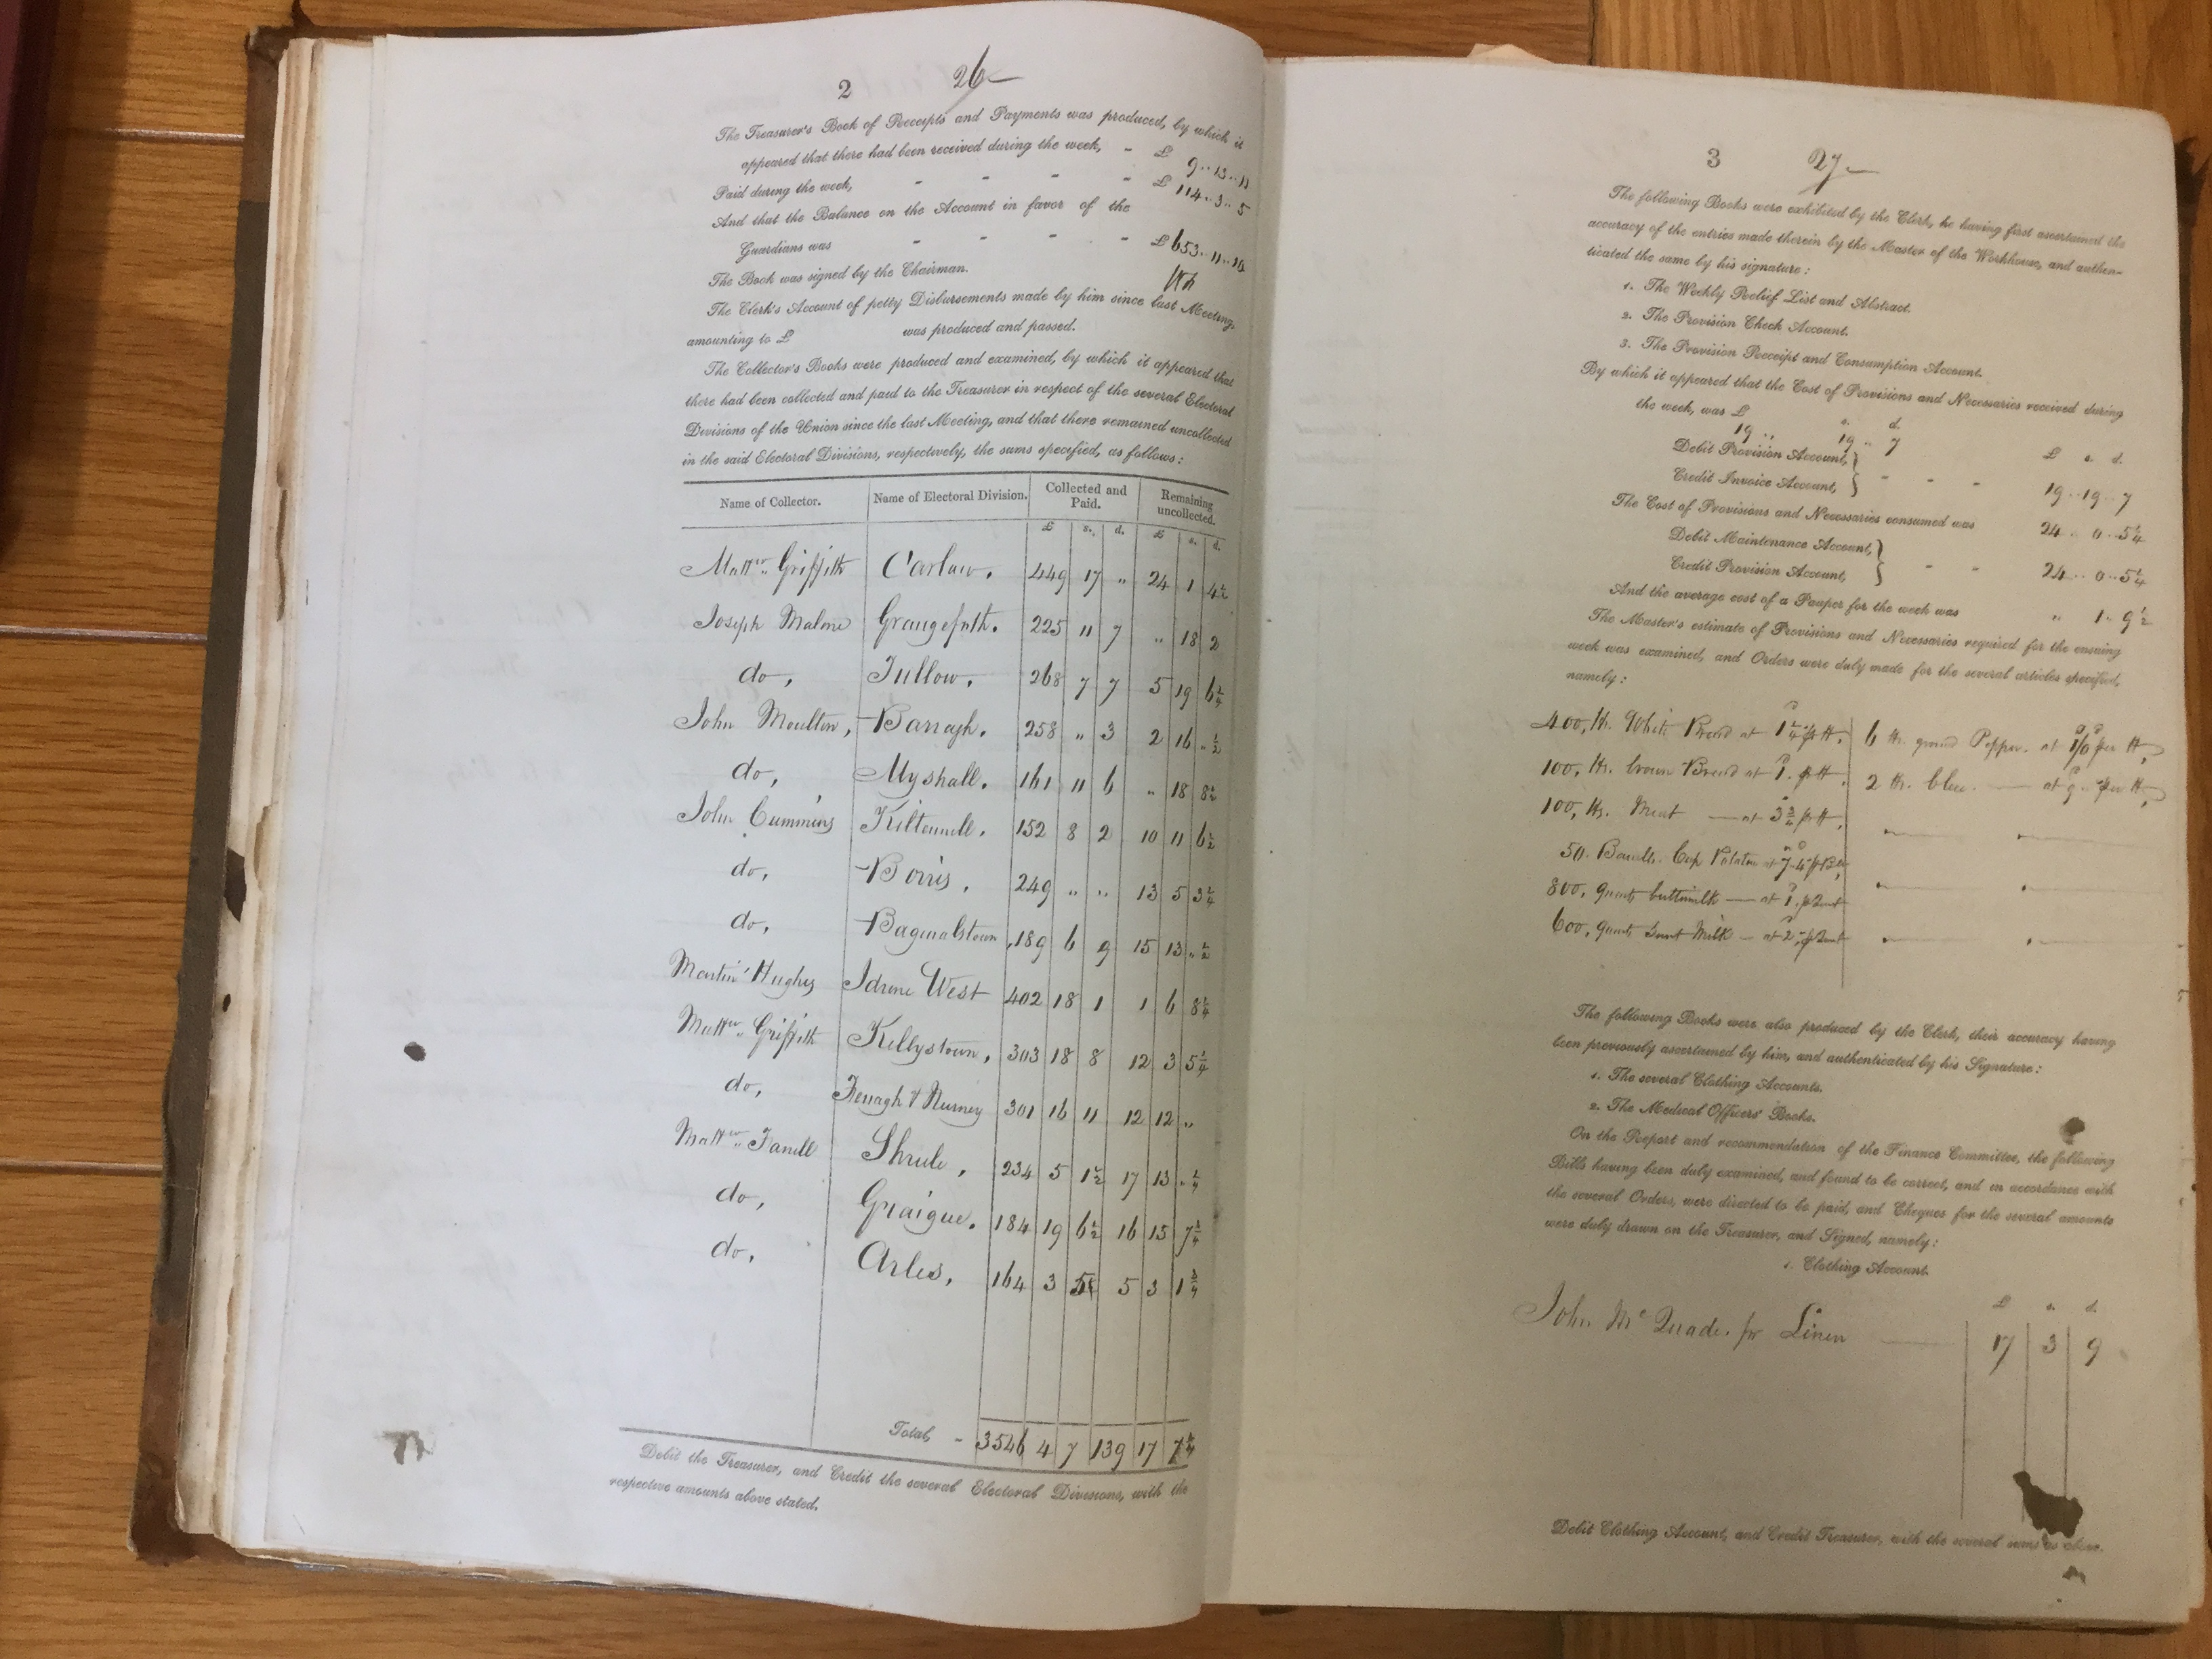 2 26
The Treasurer's Book of Receipts and Payments was produced, by which it
appeared that there had been received during the week, - £ 9..13..11
Paid during the week, - - - - £ 114..3..5
And that the Balance on the Account in favor of the
Guardians was - - - - £653..11..
The Book was signed by the Chairman.
The Clerk's Account of petty Disbursements made by him since last Meeting,
amounting to £ was produced and passed.
The Collector's Books were produced and examined, by which it appeared that
there had been collected and paid to the Treasurer in respect of the several Electoral
Divisions of the Union since the last Meeting, and that there remained uncollected
in the said Electoral Divisions, respectively, the sums specified, as follows:
Name of Collector. Name of Electoral Division. Collected and Paid. Remaining uncollected.
£ s. d. £ s. d.
Mattw.. Griffith Carlow. 449 17 " 24 1 4½
Joseph Malone Grangeforth. 225 11 7 " 18 2
do, Tullow. 268 7 7 5 19 6¼
John Moulton, Barragh. 258 " 3 2 16 " ½
do, Myshall. 161 11 6 " 18 8½
John Cummins Kiltennell. 152 8 2 10 11 6½
do, Borris. 249 " " 13 5 3¼
do, Bagnalstown, 189 6 9 15 13 " ½
Martin Hughes Idrone West 402 18 1 1 6 8¼
Mattw.. Griffith Kellystown. 303 18 8 12 3 5¼
do, Fenagh & Nurney 301 16 11 12 12 "
Mattw.. Farrell Shrule, 234 5 1½ 17 13 " ¼
do, Graigue. 184 19 6½ 16 15 7¼
do, Arles, 164 3 5 5 3 1¾
Total, - 3546 4 7 139 17 7¼
Debit the Treasurer, and Credit the several Electoral Divisions, with the
respective amounts above stated.
3 27
The following Books were exhibited by the Clerk, he having first ascertained the
accuracy of the entries made therein by the Master of the Workhouse, and authen-
ticated the same by his signature:
1. The Weekly Relief List and Abstract.
2. The Provision Check Account.
3. The Provision Receipt and Consumption Account.
By which it appeared that the Cost of Provisions and Necessaries received during
the week, was £ s. d.
19 .. 19 .. 7
Debit Provision Account, £ s. d.
Credit Invoice Account, - - - 19..19..7
The Cost of Provisions and Necessaries consumed was 24..0..5¼
Debit Maintenance Account,
Credit Provision Account, - - 24..0..5¼
And the average cost of a Pauper for the week was " 1..9½
The Master's estimate of Provisions and Necessaries required for the ensuing
week was examined, and Orders were duly made for the several articles specified,
namely:
400, lb. White Bread at 1¼ p lb. 6 lb. ground Pepper. at 1/0 per lb,
100, lb. brown Bread at 1. p lb. 2 lb. blue. — at 9 per lb,
100, lb. Meat — at 3¾ p lb,
50. Barrels. Cup Potatoes at 7-4
800, Quarts buttermilk — at 1. p Quart
600, Quarts Milk — at 2, p Quart
The following Books were also produced by the Clerk, their accuracy having
been previously ascertained by him, and authenticated by his Signature:
1. The several Clothing Accounts.
2. The Medical Officers' Books.
On the Report and recommendation of the Finance Committee, the following
Bills having been duly examined, and found to be correct, and in accordance with
the several Orders, were directed to be paid, and Cheques for the several amounts
were duly drawn on the Treasurer, and Signed, namely:
1. Clothing Account.
£ s. d.
John McQuade. for Linen — 17 3 9
Debit Clothing Account, and Credit Treasurer, with the several sums as above.